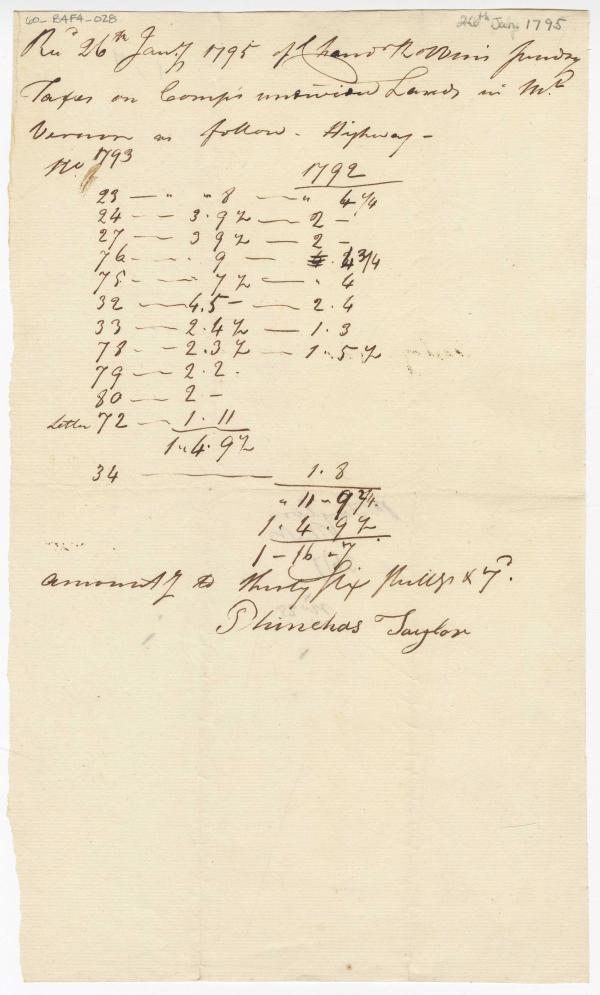 60-BAF4-028
26th Jany 1795
Recd 26th Jany 1795 of Chandr Robbins sundry
Taxes on Comps undivided Lands in Mt
Vernon as follow - Highway -
No 1793
1792
23 — " " 8 — " 4 1/4
24 — 3.9½ — 2 -
27 — 3 9½ — 2 -
76 — . 9 — 4 3/4
75 — . 7½ — " 4
32 — 4.5 - — 2.4
33 — 2.4½ — 1.3
78 — 2.3½ — 1.5½
79 — 2.2.
80 — 2 -
Letter 72 — 1.11
1.4.9½
34 — 1.8
" 11 - 9 2/4
1.4.9½
1 - 16 - 7
amountg to thirty six shillgs & 7d.
Phinehas Taylor